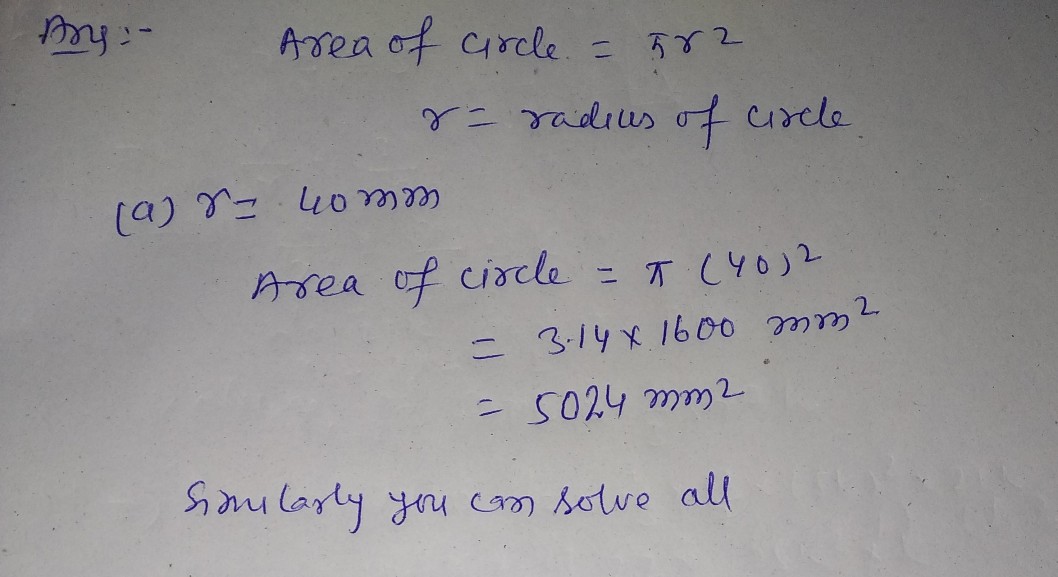 Ans:- Area of circle = πr2
r = radius of circle
(a) r = 40 mm
Area of circle = π (40)²
= 3.14 x 1600 mm²
= 5024 mm2
Similarly you can solve all